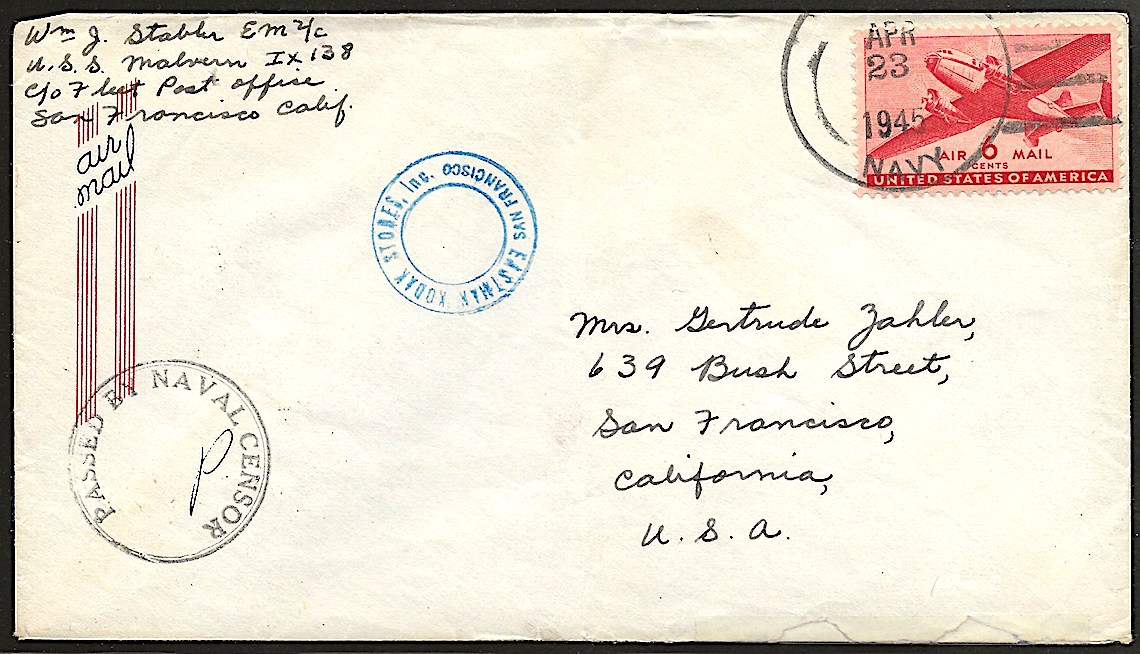 Wm J. Stabler EM 2/c
U.S.S. Malvern IX 138
C/o Fleet Post office
San Francisco Calif.
air
mail
APR
23
1945
NAVY
AIR 6 MAIL
CENTS
UNITED STATES OF AMERICA
EASTMAN KODAK STORES, Inc. SAN FRANCISCO
Mrs. Gertrude Zahler,
639 Bush Street,
San Francisco,
California,
U. S. A.
PASSED BY NAVAL CENSOR
P